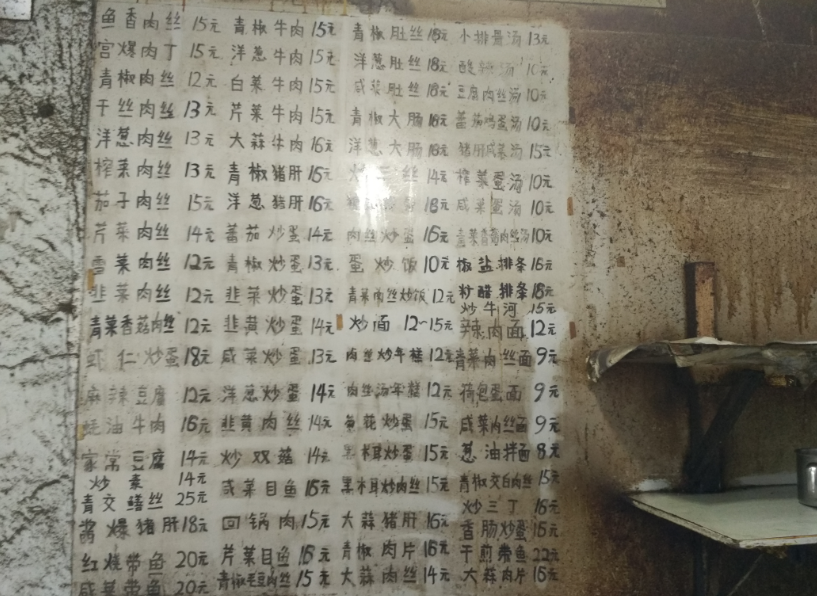 鱼香肉丝 15元
宫爆肉丁 15元
青椒肉丝 12元
干丝肉丝 13元
洋葱肉丝 13元
榨菜肉丝 13元
茄子肉丝 15元
芹菜肉丝 14元
雪菜肉丝 12元
韭菜肉丝 12元
青菜香菇肉丝 12元
虾仁炒蛋 18元
麻辣豆腐 12元
蚝油牛肉 16元
家常豆腐 14元
炒素 14元
青交鳝丝 25元
酱爆猪肝 18元
红烧带鱼 20元
咸菜带鱼 20元
青椒牛肉 15元
洋葱牛肉 15元
白菜牛肉 15元
芹菜牛肉 15元
大蒜牛肉 16元
青椒猪肝 16元
洋葱猪肝 16元
蕃茄炒蛋 14元
青椒炒蛋 13元
韭菜炒蛋 13元
韭黄炒蛋 14元
咸菜炒蛋 13元
洋葱炒蛋 14元
韭黄肉丝 14元
炒双菇 14元
咸菜目鱼 16元
回锅肉 15元
芹菜目鱼 16元
青椒毛豆肉丝 15元
青椒肚丝 18元
洋葱肚丝 18元
咸菜肚丝 18元
青椒大肠 18元
洋葱大肠 18元
炒三丝 14元
18元
肉丝炒蛋 16元
蛋炒饭 10元
青菜肉丝炒饭 12元
炒面 12~15元
肉丝炒年糕 12元
肉丝汤年糕 12元
黄花炒蛋 15元
黑木耳炒蛋 15元
黑木耳炒肉丝 15元
大蒜猪肝 16元
青椒肉片 16元
大蒜肉丝 14元
小排骨汤 13元
酸辣汤 10元
豆腐肉丝汤 10元
蕃茄鸡蛋汤 10元
猪肝咸菜汤 15元
榨菜蛋汤 10元
咸菜蛋汤 10元
青菜香菇肉丝汤 10元
椒盐排条 16元
糖醋排条 18元
炒牛河 15元
辣肉面 12元
青菜肉丝面 9元
荷包蛋面 9元
咸菜肉丝面 9元
葱油拌面 8元
青椒交白肉丝 15元
炒三丁 16元
香肠炒蛋 16元
干煎带鱼 22元
大蒜肉片 16元